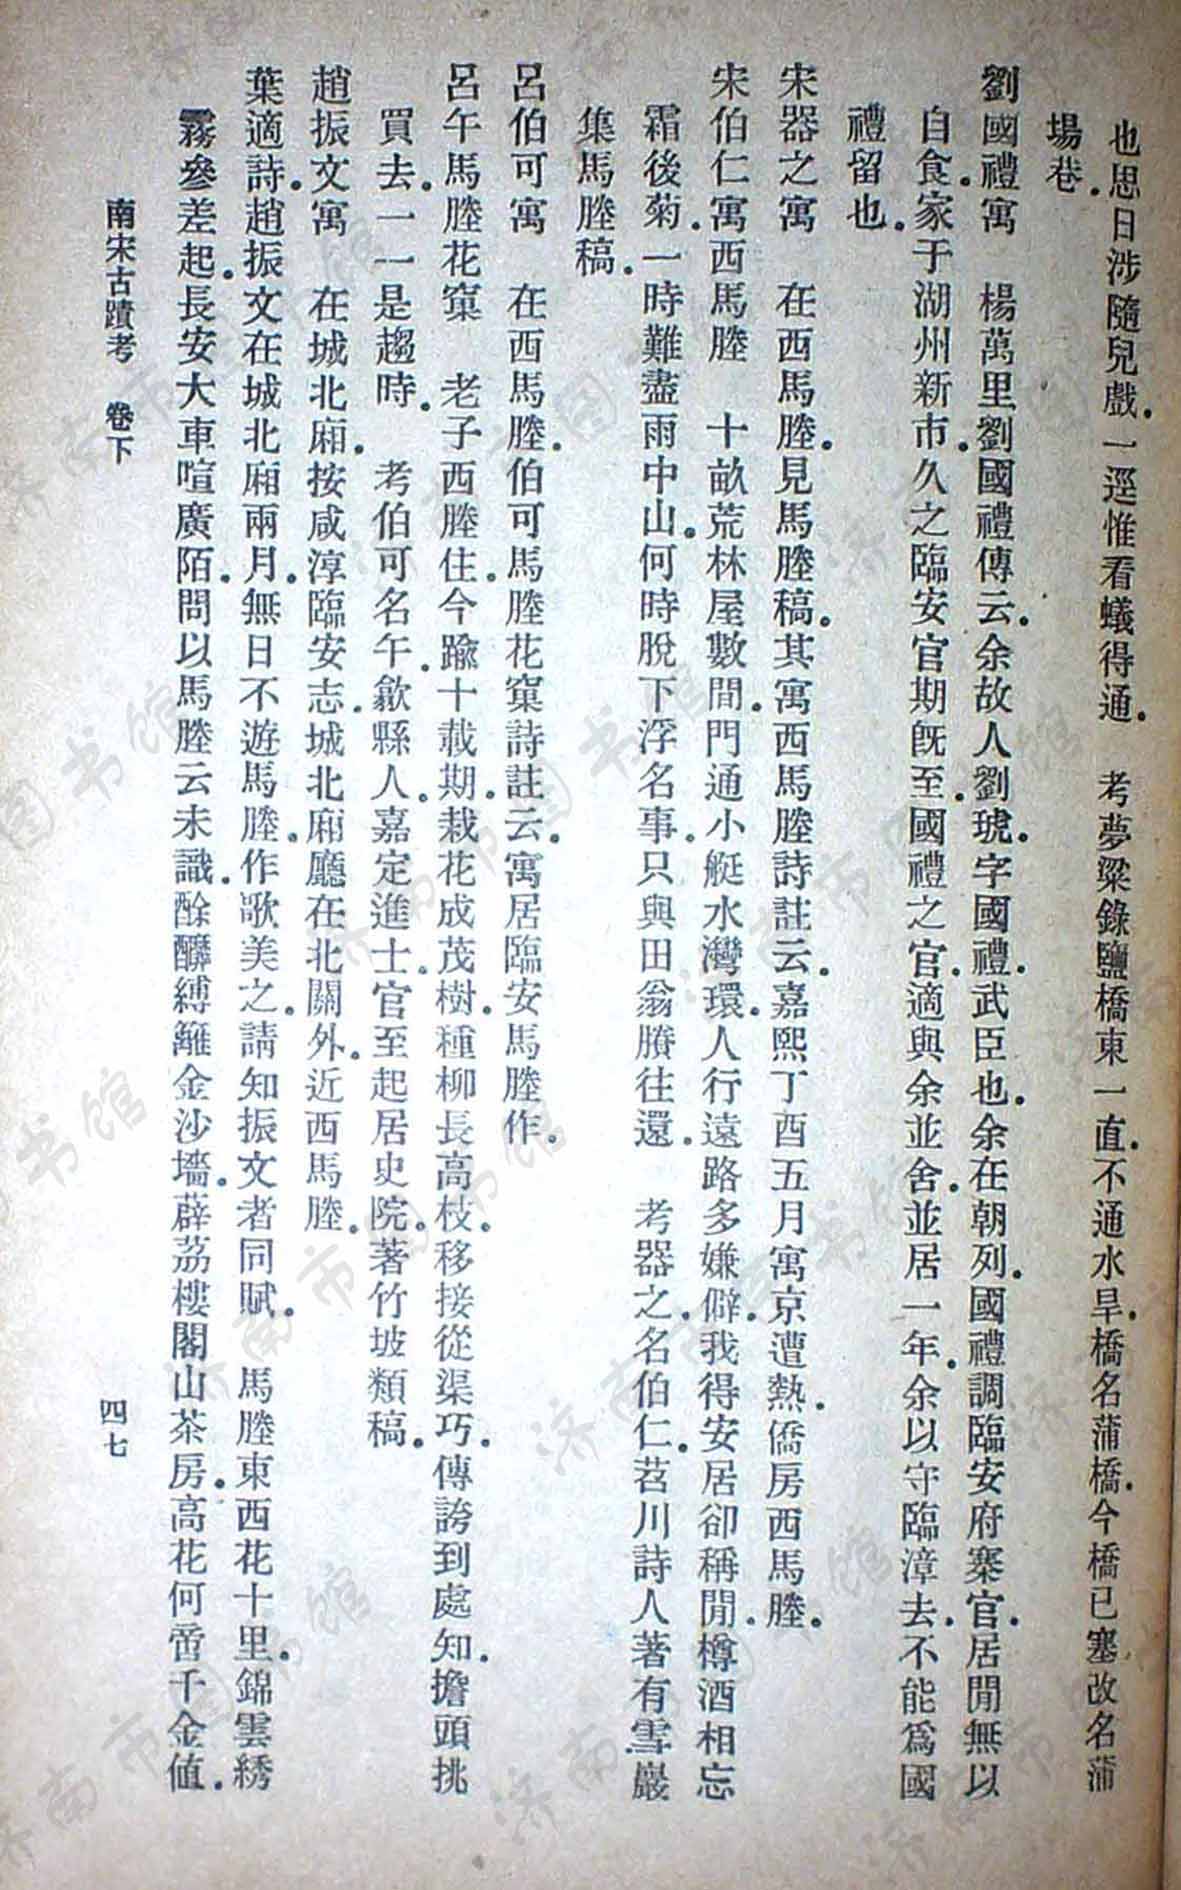 也思日涉隨兒戲。一逕惟看蟻得通。　考夢粱錄鹽橋東一直。不通水旱。橋名蒲橋。今橋已塞改名蒲
場巷。
劉國禮寓　楊萬里劉國禮傳云。余故人劉琥。字國禮。武臣也。余在朝列。國禮調臨安府寨官。居閒無以
自食。家于湖州新市。久之臨安官期既至。國禮之官。適與余並舍。並居一年。余以守臨漳去。不能爲國
禮留也。
宋器之寓　在西馬塍。見馬塍稿。其寓西馬塍詩註云。嘉熙丁酉五月寓京遭熱。僑房西馬塍。
宋伯仁寓西馬塍　十畝荒林屋數間。門通小艇水灣環。人行遠路多嫌僻。我得安居卻稱閒。樽酒相忘
霜後菊。一時難盡雨中山。何時脫下浮名事。只與田翁賸往還。　考器之名伯仁。苕川詩人著有雪巖
集馬塍稿。
呂伯可寓　在西馬塍。伯可馬塍花窠詩註云。寓居臨安馬塍作。
呂午馬塍花窠　老子西塍住。今踰十載期。栽花成茂樹。種柳長高枝。移接從渠巧。傳誇到處知。擔頭挑
買去。一一是趨時。　考伯可名午。歙縣人。嘉定進士。官至起居史院。著竹坡類稿。
趙振文寓　在城北廂。按咸淳臨安志。城北廂廳在北關外。近西馬塍。
葉適詩。趙振文在城北廂兩月。無日不遊馬塍。作歌美之。請知振文者同賦。　馬塍東西花十里。錦雲綉
霧參差起。長安大車喧廣陌。問以馬塍云未識。酴醿縛籬金沙墻。薜荔樓閣山茶房。高花何啻千金値。
南宋古蹟考　卷下
四七
济南市图书馆